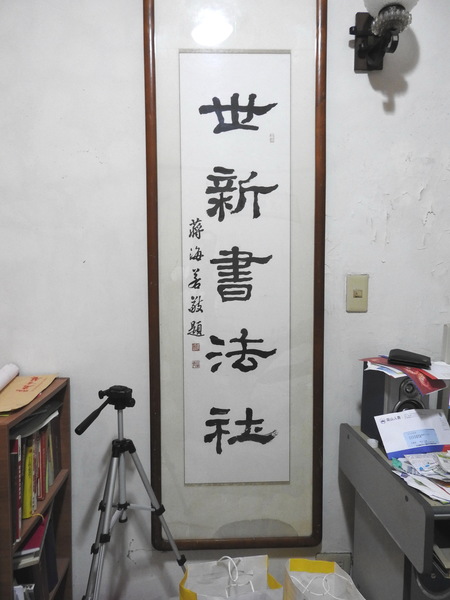 世新書法社
蔣海善敬題